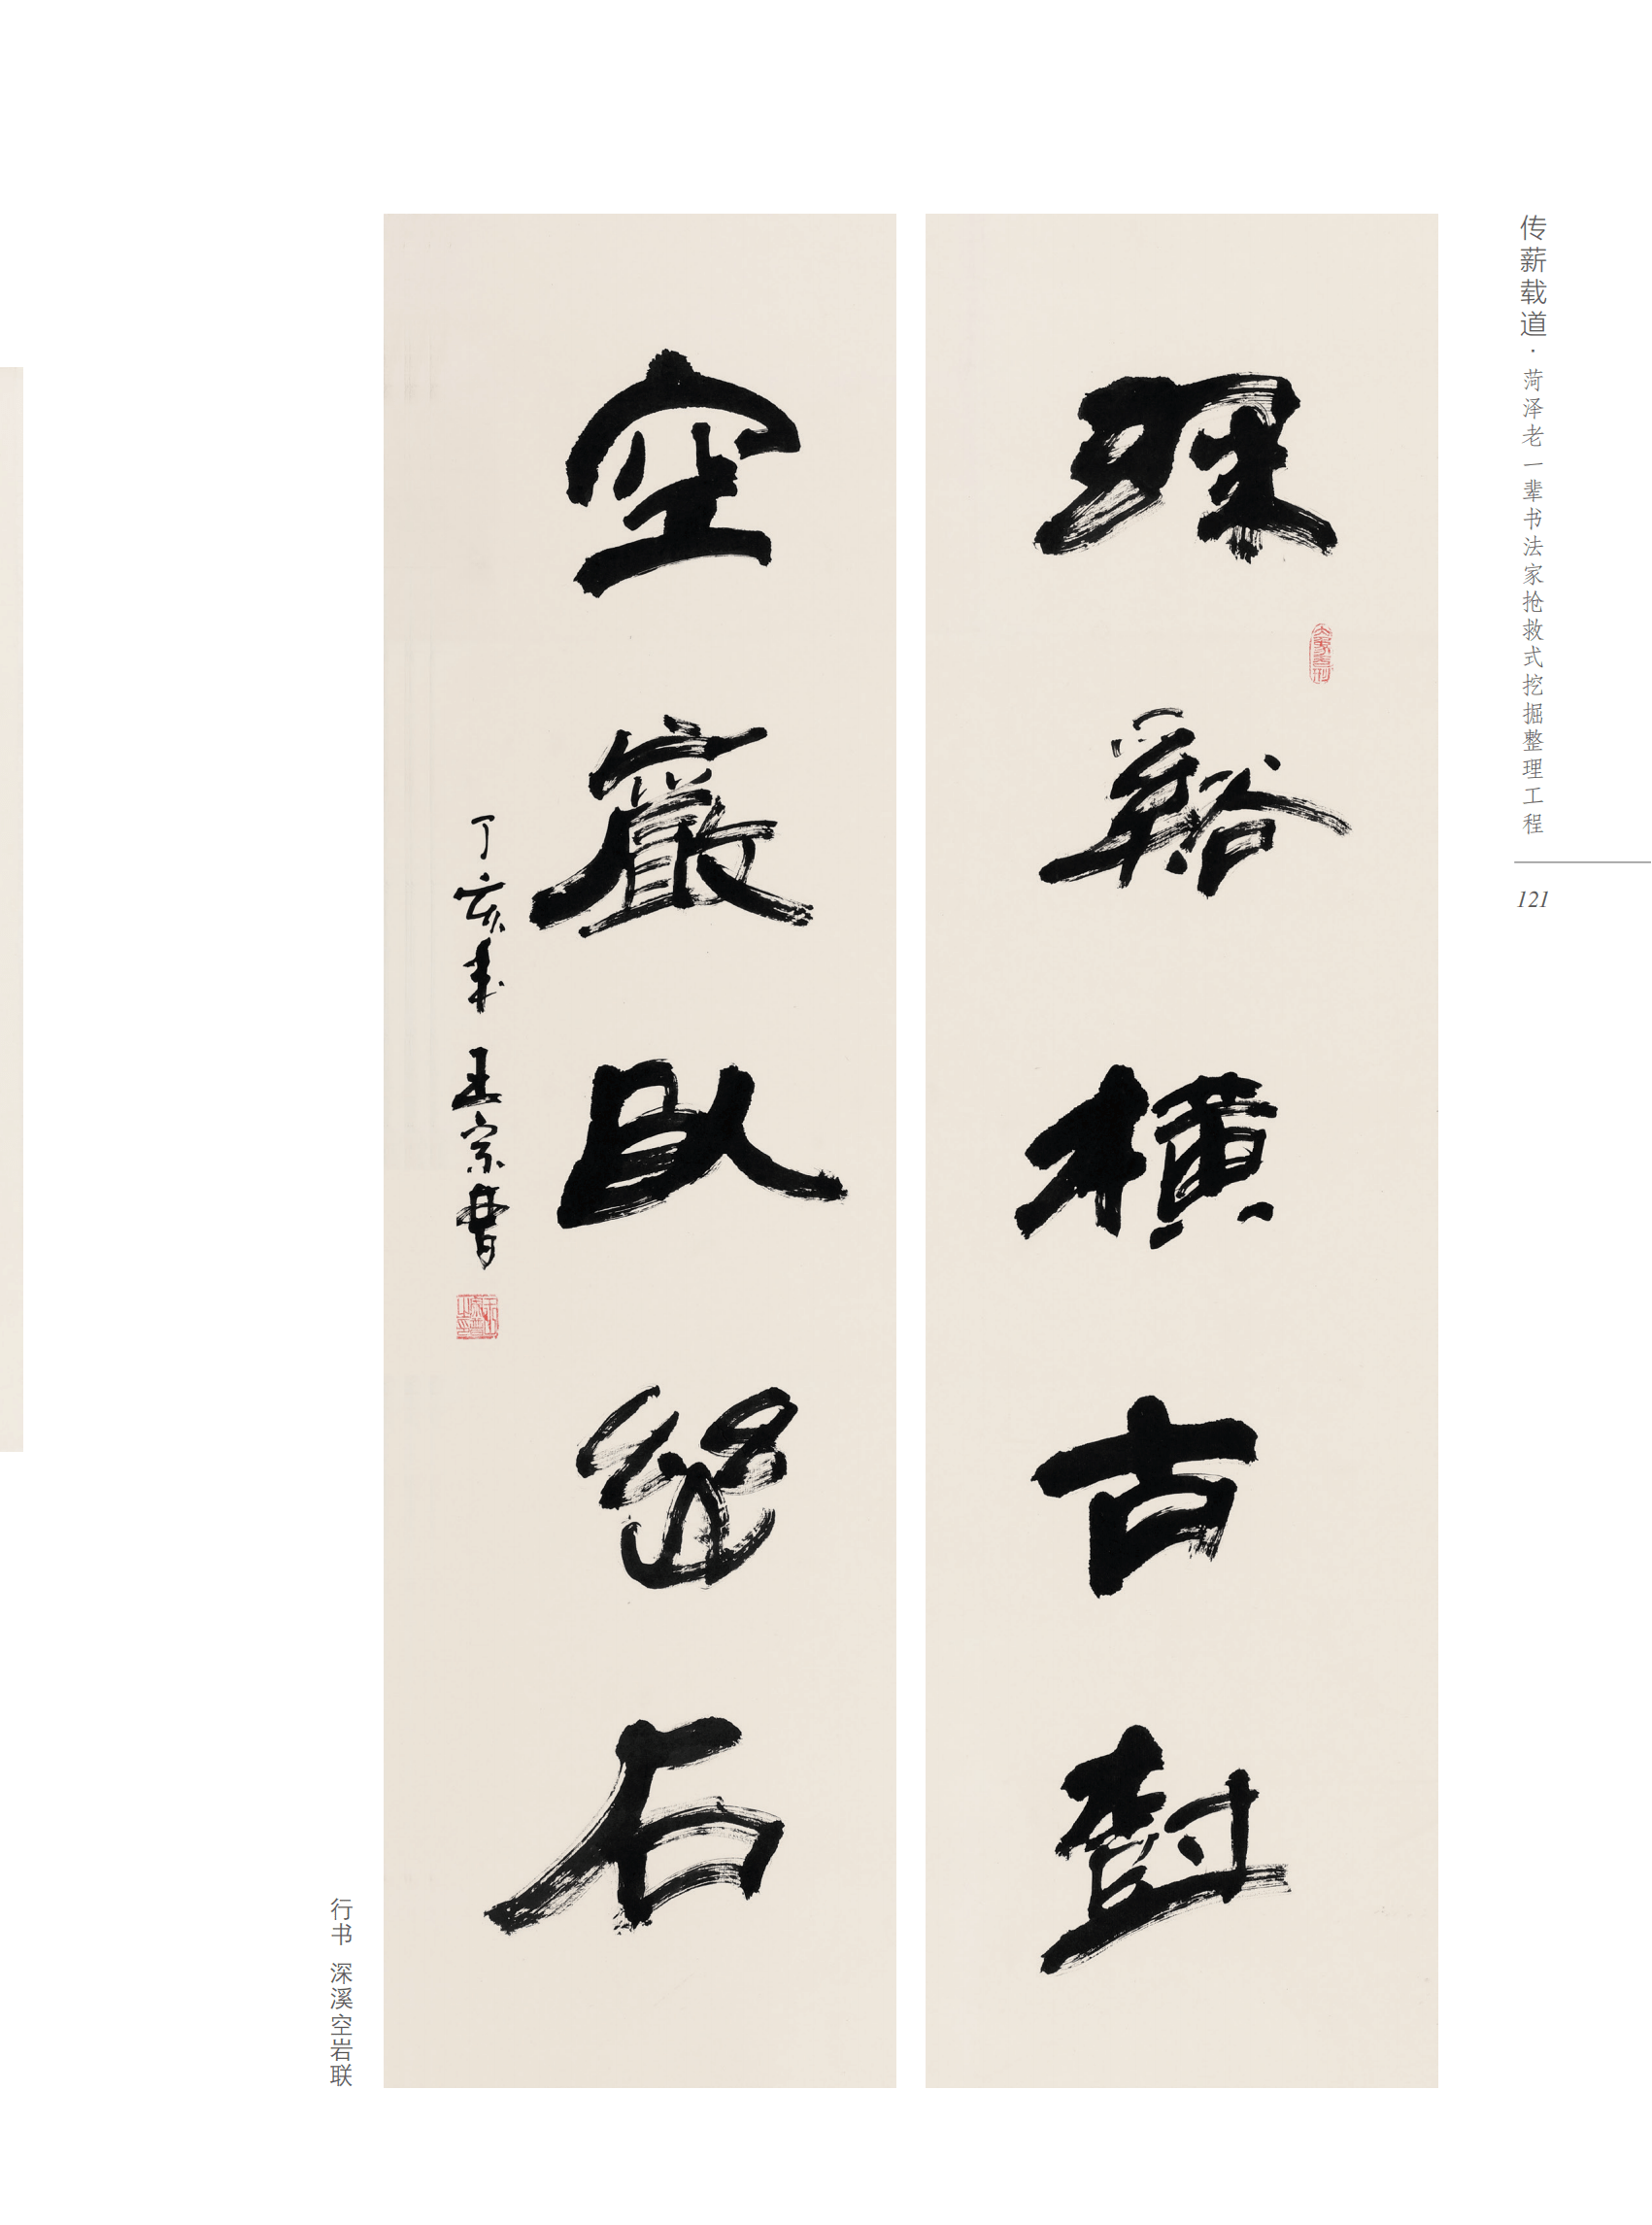 传薪载道·菏泽老一辈书法家抢救式挖掘整理工程
121
深谿橫古樹
空巖臥幽石
丁亥秋 王宗普
行书 深溪空岩联